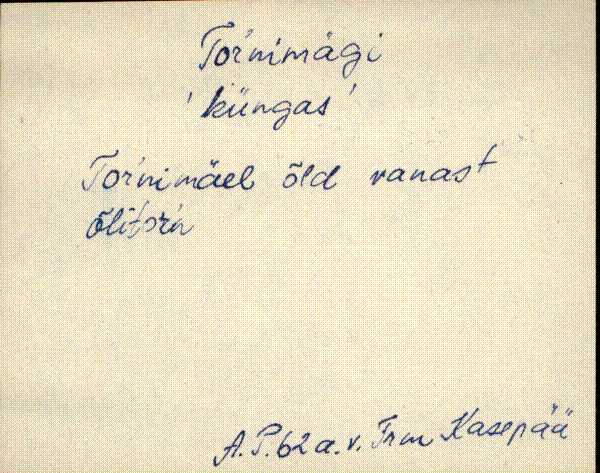 Tor'nimägi
'küngas'
Tor'nimäel õld vanast
õlitor'n
A. P. 62 a. v. Trm Kasepää